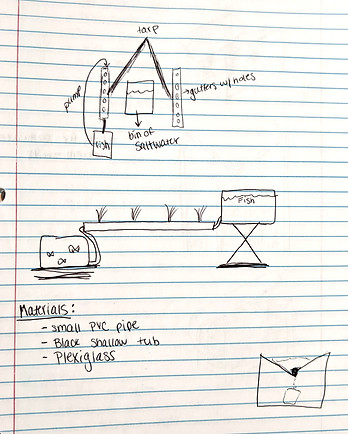 tarp
pump
gutters w/ holes
fish
bin of
saltwater
Fish
Materials:
- small PVC pipe
- Black shallow tub
- Plexiglass